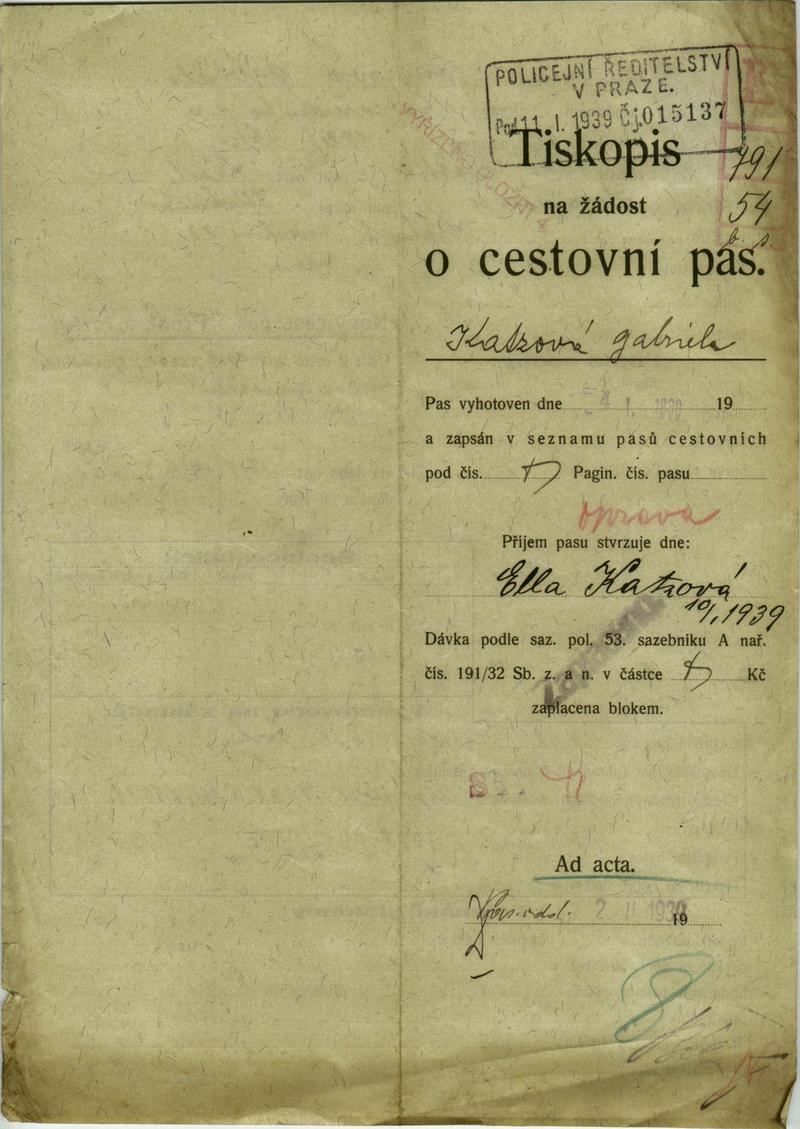 POLICEJNÍ ŘEDITELSTVÍ
V PRAZE.
11. I. 1939 Čj. 015137
Tiskopis
791
54
na žádost
o cestovní pas.
Katzová Gabriela
Pas vyhotoven dne 19
a zapsán v seznamu pasů cestovních
pod čís. Pagin. čís. pasu
oprava
Příjem pasu stvrzuje dne:
Ella Katzová
10/I 1939
Dávka podle saz. pol. 53. sazebníku A nař.
čís. 191/32 Sb. z. a n. v částce Kč
zaplacena blokem.
Ad acta.
2 II 1939 19
8